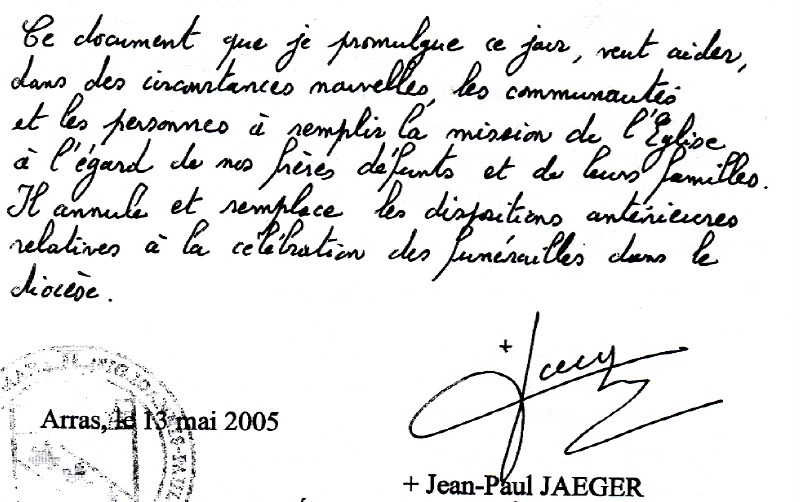 Ce document que je promulgue ce jour, veut aider,
dans des circonstances nouvelles, les communautés
et les personnes à remplir la mission de l'Eglise
à l'égard de nos frères défunts et de leurs familles.
Il annule et remplace les dispositions antérieures
relatives à la célébration des funérailles dans le
diocèse.
+ Jaeger
Arras, le 13 mai 2005
+ Jean-Paul JAEGER